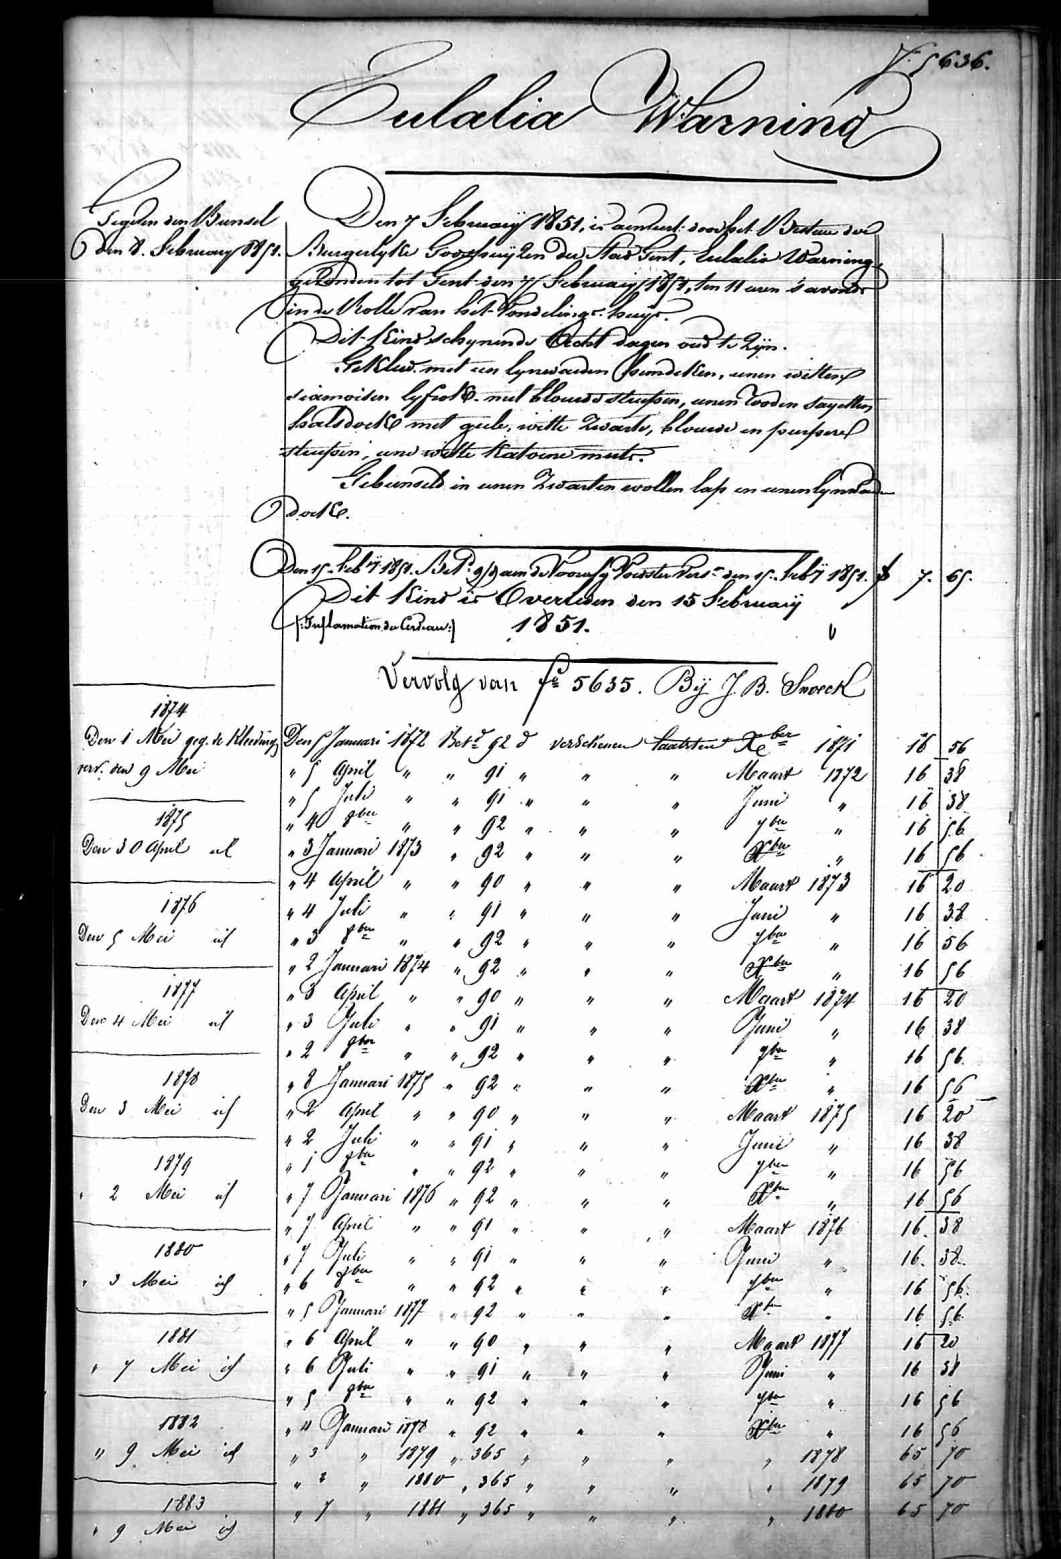 № 5636.
Eulalia Warning
Gegeven den Bunsel
den 8. February 1851.
Den 7 February 1851, is aenveert door het Bureau der
Burgerlyke Godshuyzen der Stad Gent, Eulalia Warning,
gevonden tot Gent den 7 February 1851, ten 11 uren s'avonds
in de Rolle van het Vondelings-huys.
Dit Kind schynende Acht dagen oud te zyn.
Gekleed met een lynwaeden hemdeken, eenen witten
siamoisen lyfrok met blauwe streepen, eenen rooden sayetten
halsdoek met geele, witte zwarte, blauwe en purpere
streepen, eene witte katoene muts.
Gebunseld in eenen zwarten wollen lap en eenen lynwaden
doek.
Den 15 feby 1851. Bet. 9/d aen de Voedster vers. den 15 feby 1851. f 7. 65.
Dit Kind is Overleden den 15 February
(:Inflamation du Cerveau:) 1851.
Vervolg van fo 5635. Bij J. B. Snoeck
1874
Den 1 Mei geg. de Kleeding
verv. den 9 Mei
1875
Den 30 April id
1876
Den 5 Mei id
1877
Den 4 Mei id
1878
Den 3 Mei id
1879
" 2 Mei id
1880
" 3 Mei id
1881
" 7 Mei id
1882
" 9 Mei id
1883
" 9 Mei id
Den 5 Januari 1872 Bet. 92 d verschenen laatsten Xber 1871 16 56
" 5 April " " 91 " " " Maart 1872 16 38
" 5 Juli " " 91 " " " Juni " 16 38
" 4 8ber " " 92 " " " 7ber " 16 56
" 3 Januari 1873 " 92 " " " Xber " 16 56
" 4 April " " 90 " " " Maart 1873 16 20
" 4 Juli " " 91 " " " Juni " 16 38
" 3 8ber " " 92 " " " 7ber " 16 56
" 2 Januari 1874 " 92 " " " Xber " 16 56
" 3 April " " 90 " " " Maart 1874 16 20
" 3 Juli " " 91 " " " Juni " 16 38
" 2 8ber " " 92 " " " 7ber " 16 56
" 8 Januari 1875 " 92 " " " Xber " 16 56
" 2 April " " 90 " " " Maart 1875 16 20
" 2 Juli " " 91 " " " Juni " 16 38
" 1 8ber " " 92 " " " 7ber " 16 56
" 7 Januari 1876 " 92 " " " Xber " 16 56
" 7 April " " 91 " " " Maart 1876 16 38
" 7 Juli " " 91 " " " Juni " 16 38
" 6 8ber " " 92 " " " 7ber " 16 56
" 5 Januari 1877 " 92 " " " Xber " 16 56
" 6 April " " 90 " " " Maart 1877 16 20
" 6 Juli " " 91 " " " Juni " 16 38
" 5 8ber " " 92 " " " 7ber " 16 56
" 4 Januari 1878 " 92 " " " Xber " 16 56
" 3 " 1879 " 365 " " " " 1878 65 70
" 2 " 1880 " 365 " " " " 1879 65 70
" 7 " 1881 " 365 " " " " 1880 65 70